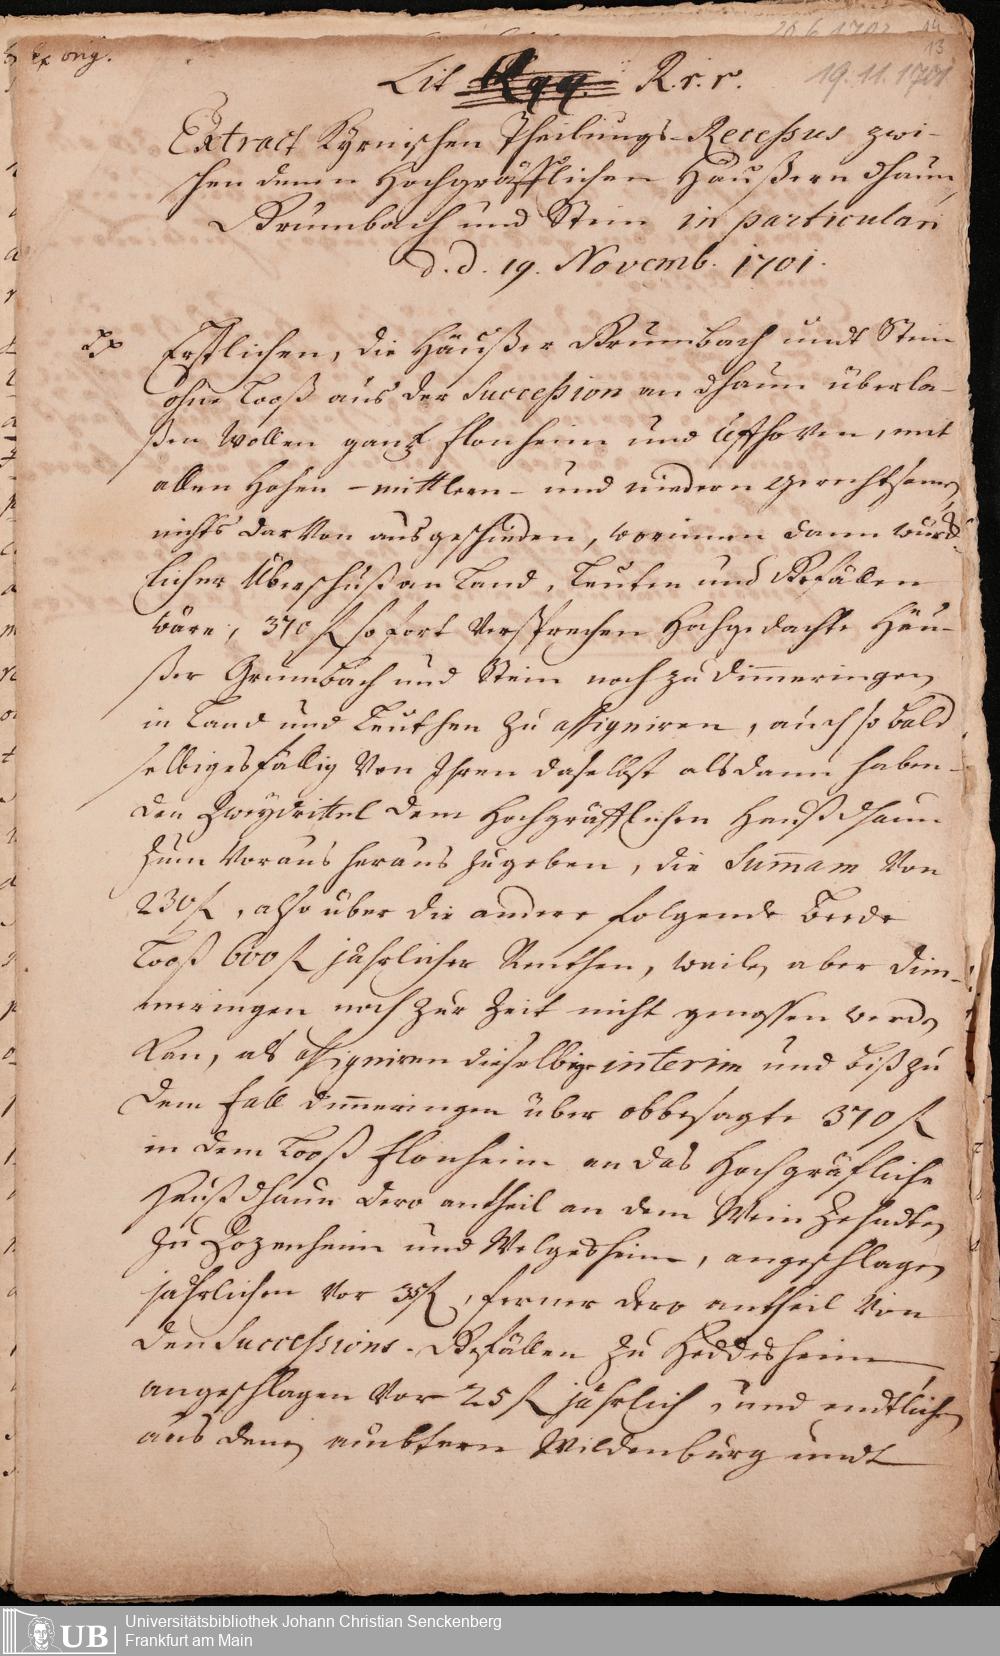 19.11.1701
14
13
Ex orig.
Lit Qqq. R.r.r.
Extract Kyrnischen Theilungs-Recessus zwi-
schen denen Hochgräfflichen Häußern Dhaun,
Grumbach und Stein in particulari
d. d. 19. Novemb. 1701.
Erstlichen, die Häußer Grumbach undt Stein
ohne Looß aus der Succession an Dhaun überla-
ßen wollen gantz Flonheim und Uffhoven, mit
allen hohen - mittlern - und niedern Gerechtsamen,
nichts darvon ausgeschieden, worinnen dann
licher Überschuß an Land, Leuten und Gefällen
wäre, 370 fl sofort versprechen hochgedachte Häu-
ßer Grumbach und Stein noch zu Dimeringen
in Land und Leuthen zu assigniren, auch so bald
selbiges fällig von Ihren daselbst alsdann haben-
den Zweydrittel dem Hochgräfflichen Hauß Dhaun
zum Voraus heraus zugeben, die Summam von
230 fl, also über die andere folgende beede
Looß 600 fl jährlicher Renthen, weilen aber Dim-
meringen noch zur Zeit nicht genossen werden
kan, als assigniren dieselbige interim und biß zu
dem Fall Dimeringen über obbesagte 370 fl
in dem Looß Flonheim an das Hochgräfliche
Hauß Dhaun dero antheil an dem Wein Zehndten
zu Zozenheim und Welgesheim, angeschlagen
jährlichen vor 35 fl, ferner dero antheil von
den Successions-Gefällen zu Heddesheim
angeschlagen vor 25 fl jährlich, und endtlichen
aus denen ambtern Wildenburg undt
UB
Universitätsbibliothek Johann Christian Senckenberg
Frankfurt am Main